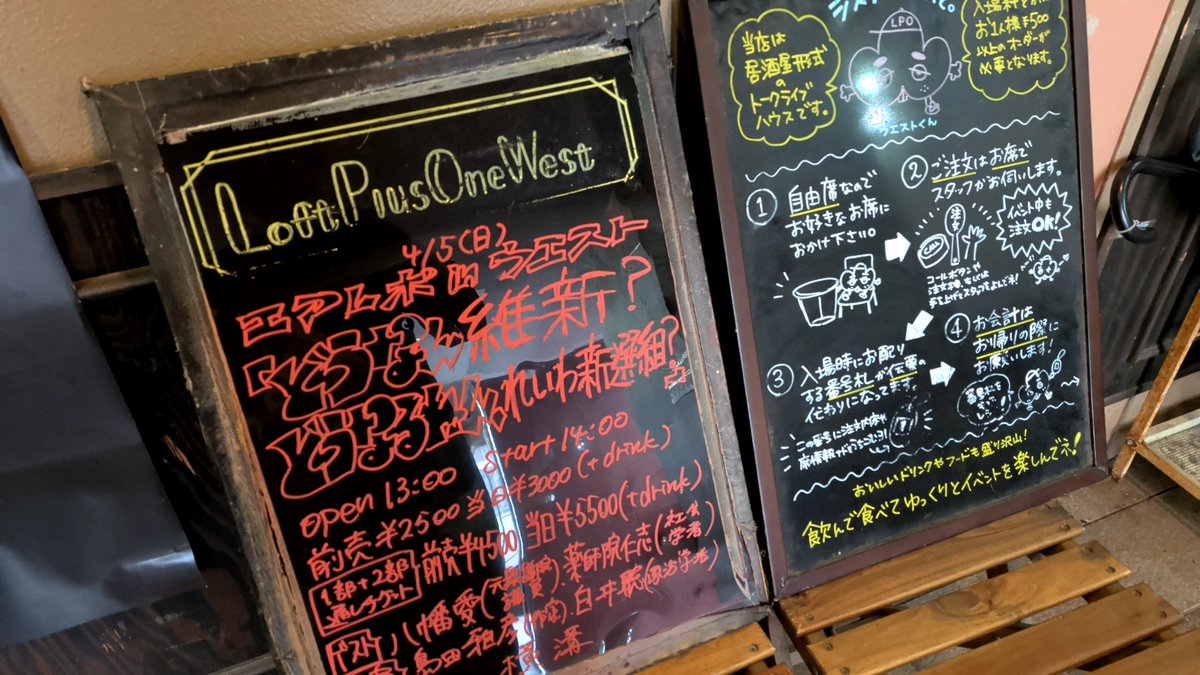 Loft PlusOne West
4/5(日)
ニアム来的ウエスト
どうする維新?
どうするれいわ新選組?
open 13:00 start 14:00
前売¥2500 当日¥3000(+drink)
1部+2部
通しチケット
前売¥4500 当日¥5500(+drink)
ゲスト
八幡愛(元衆議院議員)、薬師院仁志(社会学者)
白井聡(政治学者)
LPO
当店は
居酒屋形式
の
トークライブ
ハウスです。
ウエストくん
お1人様¥500
以上のオーダーが
必要となります。
① 自由席なので
お好きなお席に
おかけ下さい。
② ご注文はお席で
スタッフがお伺いします。
イベント中も
注文OK!
コールボタンや
③ 入場時にお配り
する番号札が伝票の
代わりになってます。
④ お会計は
お帰りの際に
お願いします!
おいしいドリンクやフードも盛り沢山!
飲んで食べてゆっくりとイベントを楽しんでネ!